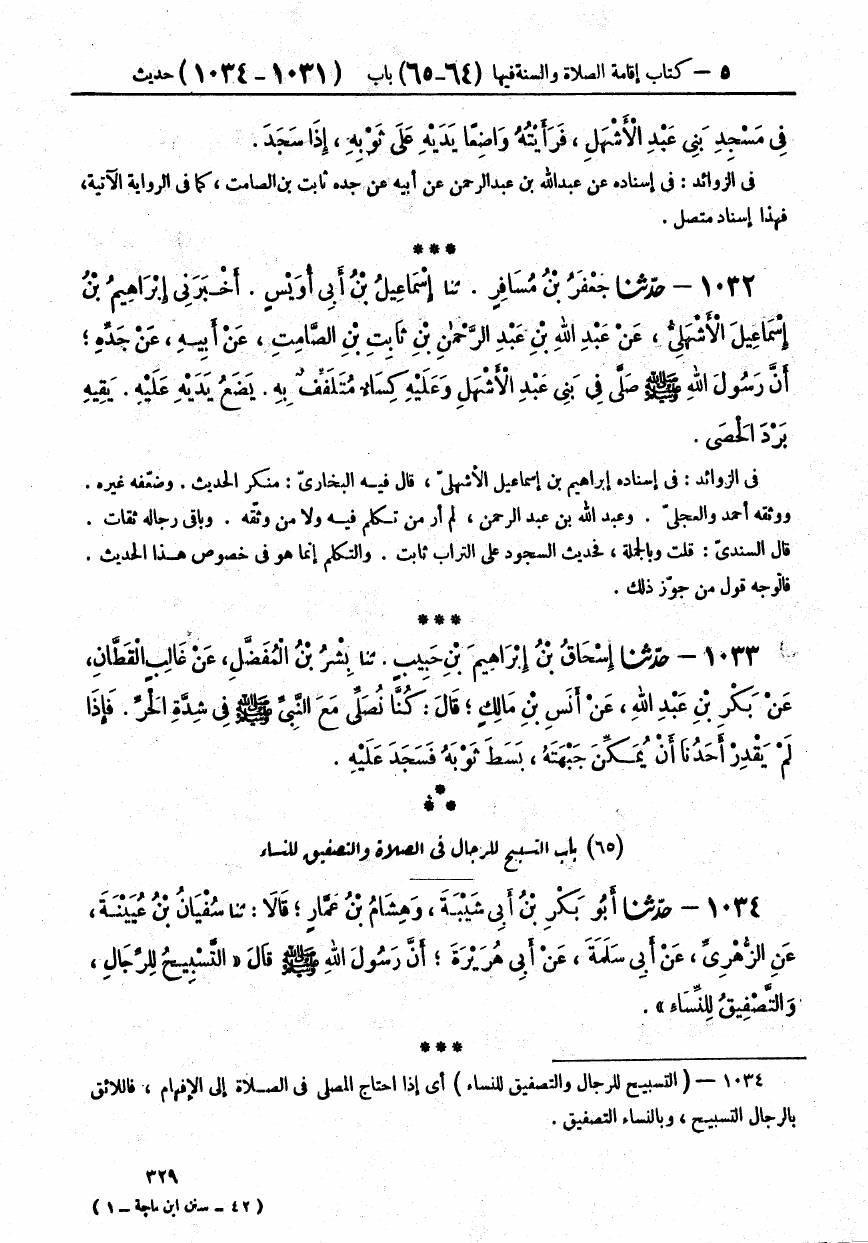 ٥ – كتاب إقامة الصلاة والسنة فيها (٦٤-٦٥) باب (١٠٣١ - ١٠٣٤) حديث
فِى مَسْجِدِ بَنِى عَبْدِ الْأَشْهَلِ ، فَرَأَيْتُهُ وَاضِعًا يَدَيْهِ عَلَى ثَوْبِهِ ، إِذَا سَجَدَ .
فى الزوائد : فى إسناده عن عبدالله بن عبدالرحمن عن أبيه عن جده ثابت بن الصامت ، كما فى الرواية الآتية،
فهذا إسناد متصل .
***
١٠٣٢ – حَدَّثَنَا جَعْفَرُ بْنُ مُسَافِرٍ . ثنا إِسْمَاعِيلُ بْنُ أَبِى أُوَيْسٍ . أَخْبَرَنِى إِبْرَاهِيمُ بْنُ
إِسْمَاعِيلَ الْأَشْهَلِىُّ ، عَنْ عَبْدِ اللهِ بْنِ عَبْدِ الرَّحْمٰنِ بْنِ ثَابِتِ بْنِ الصَّامِتِ ، عَنْ أَبِيهِ ، عَنْ جَدِّهِ ؛
أَنَّ رَسُولَ اللهِ ﷺ صَلَّى فِى بَنِى عَبْدِ الْأَشْهَلِ وَعَلَيْهِ كِسَاءٌ مُتَلَفِّفٌ بِهِ . يَضَعُ يَدَيْهِ عَلَيْهِ . يَقِيهِ
بَرْدَ الْحَصَى .
فى الزوائد : فى إسناده إبراهيم بن إسماعيل الأشهلىّ ، قال فيه البخارىّ : منكر الحديث . وضعّفه غيره .
ووثقه أحمد والعجلىّ . وعبد الله بن عبد الرحمن ، لم أر من تكلم فيه ولا من وثّقه . وباقى رجاله ثقات .
قال السندىّ : قلت وبالجملة ، فحديث السجود على التراب ثابت . والتكلم إنما هو فى خصوص هذا الحديث .
فالوجه قول من جوّز ذلك .
***
١٠٣٣ – حَدَّثَنَا إِسْحَاقُ بْنُ إِبْرَاهِيمَ بْنِ حَبِيبٍ . ثنا بِشْرُ بْنُ الْمُفَضَّلِ، عَنْ غَالِبٍ الْقَطَّانِ،
عَنْ بَكْرِ بْنِ عَبْدِ اللهِ ، عَنْ أَنَسِ بْنِ مَالِكٍ ؛ قَالَ : كُنَّا نُصَلِّى مَعَ النَّبِىِّ ﷺ فِى شِدَّةِ الْحَرِّ . فَإِذَا
لَمْ يَقْدِرْ أَحَدُنَا أَنْ يُمَكِّنَ جَبْهَتَهُ ، بَسَطَ ثَوْبَهُ فَسَجَدَ عَلَيْهِ .
***
(٦٥) باب التسبيح للرجال فى الصلاة والتصفيق للنساء
١٠٣٤ – حَدَّثَنَا أَبُو بَكْرِ بْنُ أَبِى شَيْبَةَ ، وَهِشَامُ بْنُ عَمَّارٍ ؛ قَالَا : ثنا سُفْيَانُ بْنُ عُيَيْنَةَ ،
عَنِ الزُّهْرِىِّ ، عَنْ أَبِى سَلَمَةَ ، عَنْ أَبِى هُرَيْرَةَ ؛ أَنَّ رَسُولَ اللهِ ﷺ قَالَ « التَّسْبِيحُ لِلرِّجَالِ ،
وَالتَّصْفِيقُ لِلنِّسَاءِ » .
***
١٠٣٤ – ( التسبيح للرجال والتصفيق للنساء ) أى إذا احتاج المصلى فى الصلاة إلى الإفهام ، فاللائق
بالرجال التسبيح ، وبالنساء التصفيق .
٣٢٩
( ٤٢ – سنن ابن ماجة – ١ )